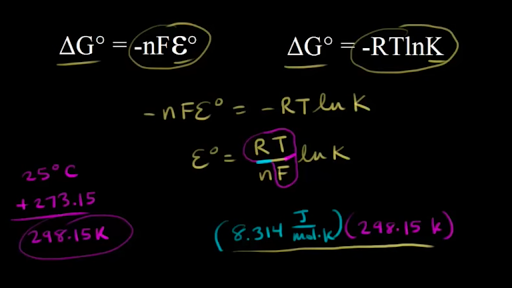 ΔG° = -nFƐ° ΔG° = -RTlnK
-nFƐ° = -RT ln K
Ɛ° = RT/nF ln K
25°C
+273.15
298.15K
(8.314 J/mol·K)(298.15 K)